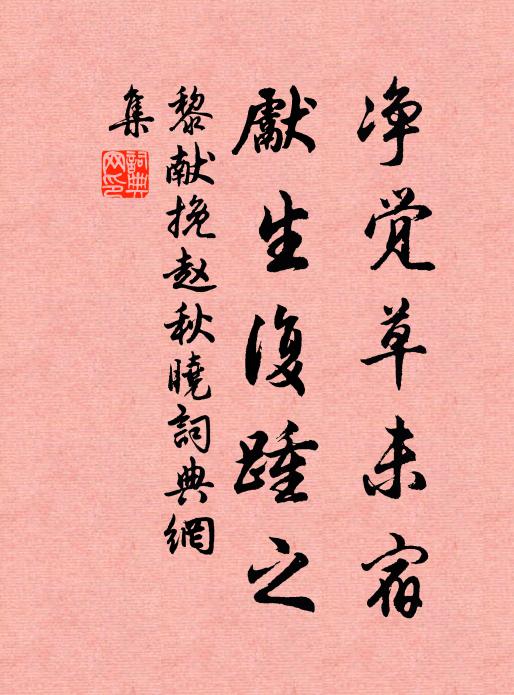 净觉草未宿
獻生復踵之
黎献挽赵秋曉詞典網
集
詞典
网印